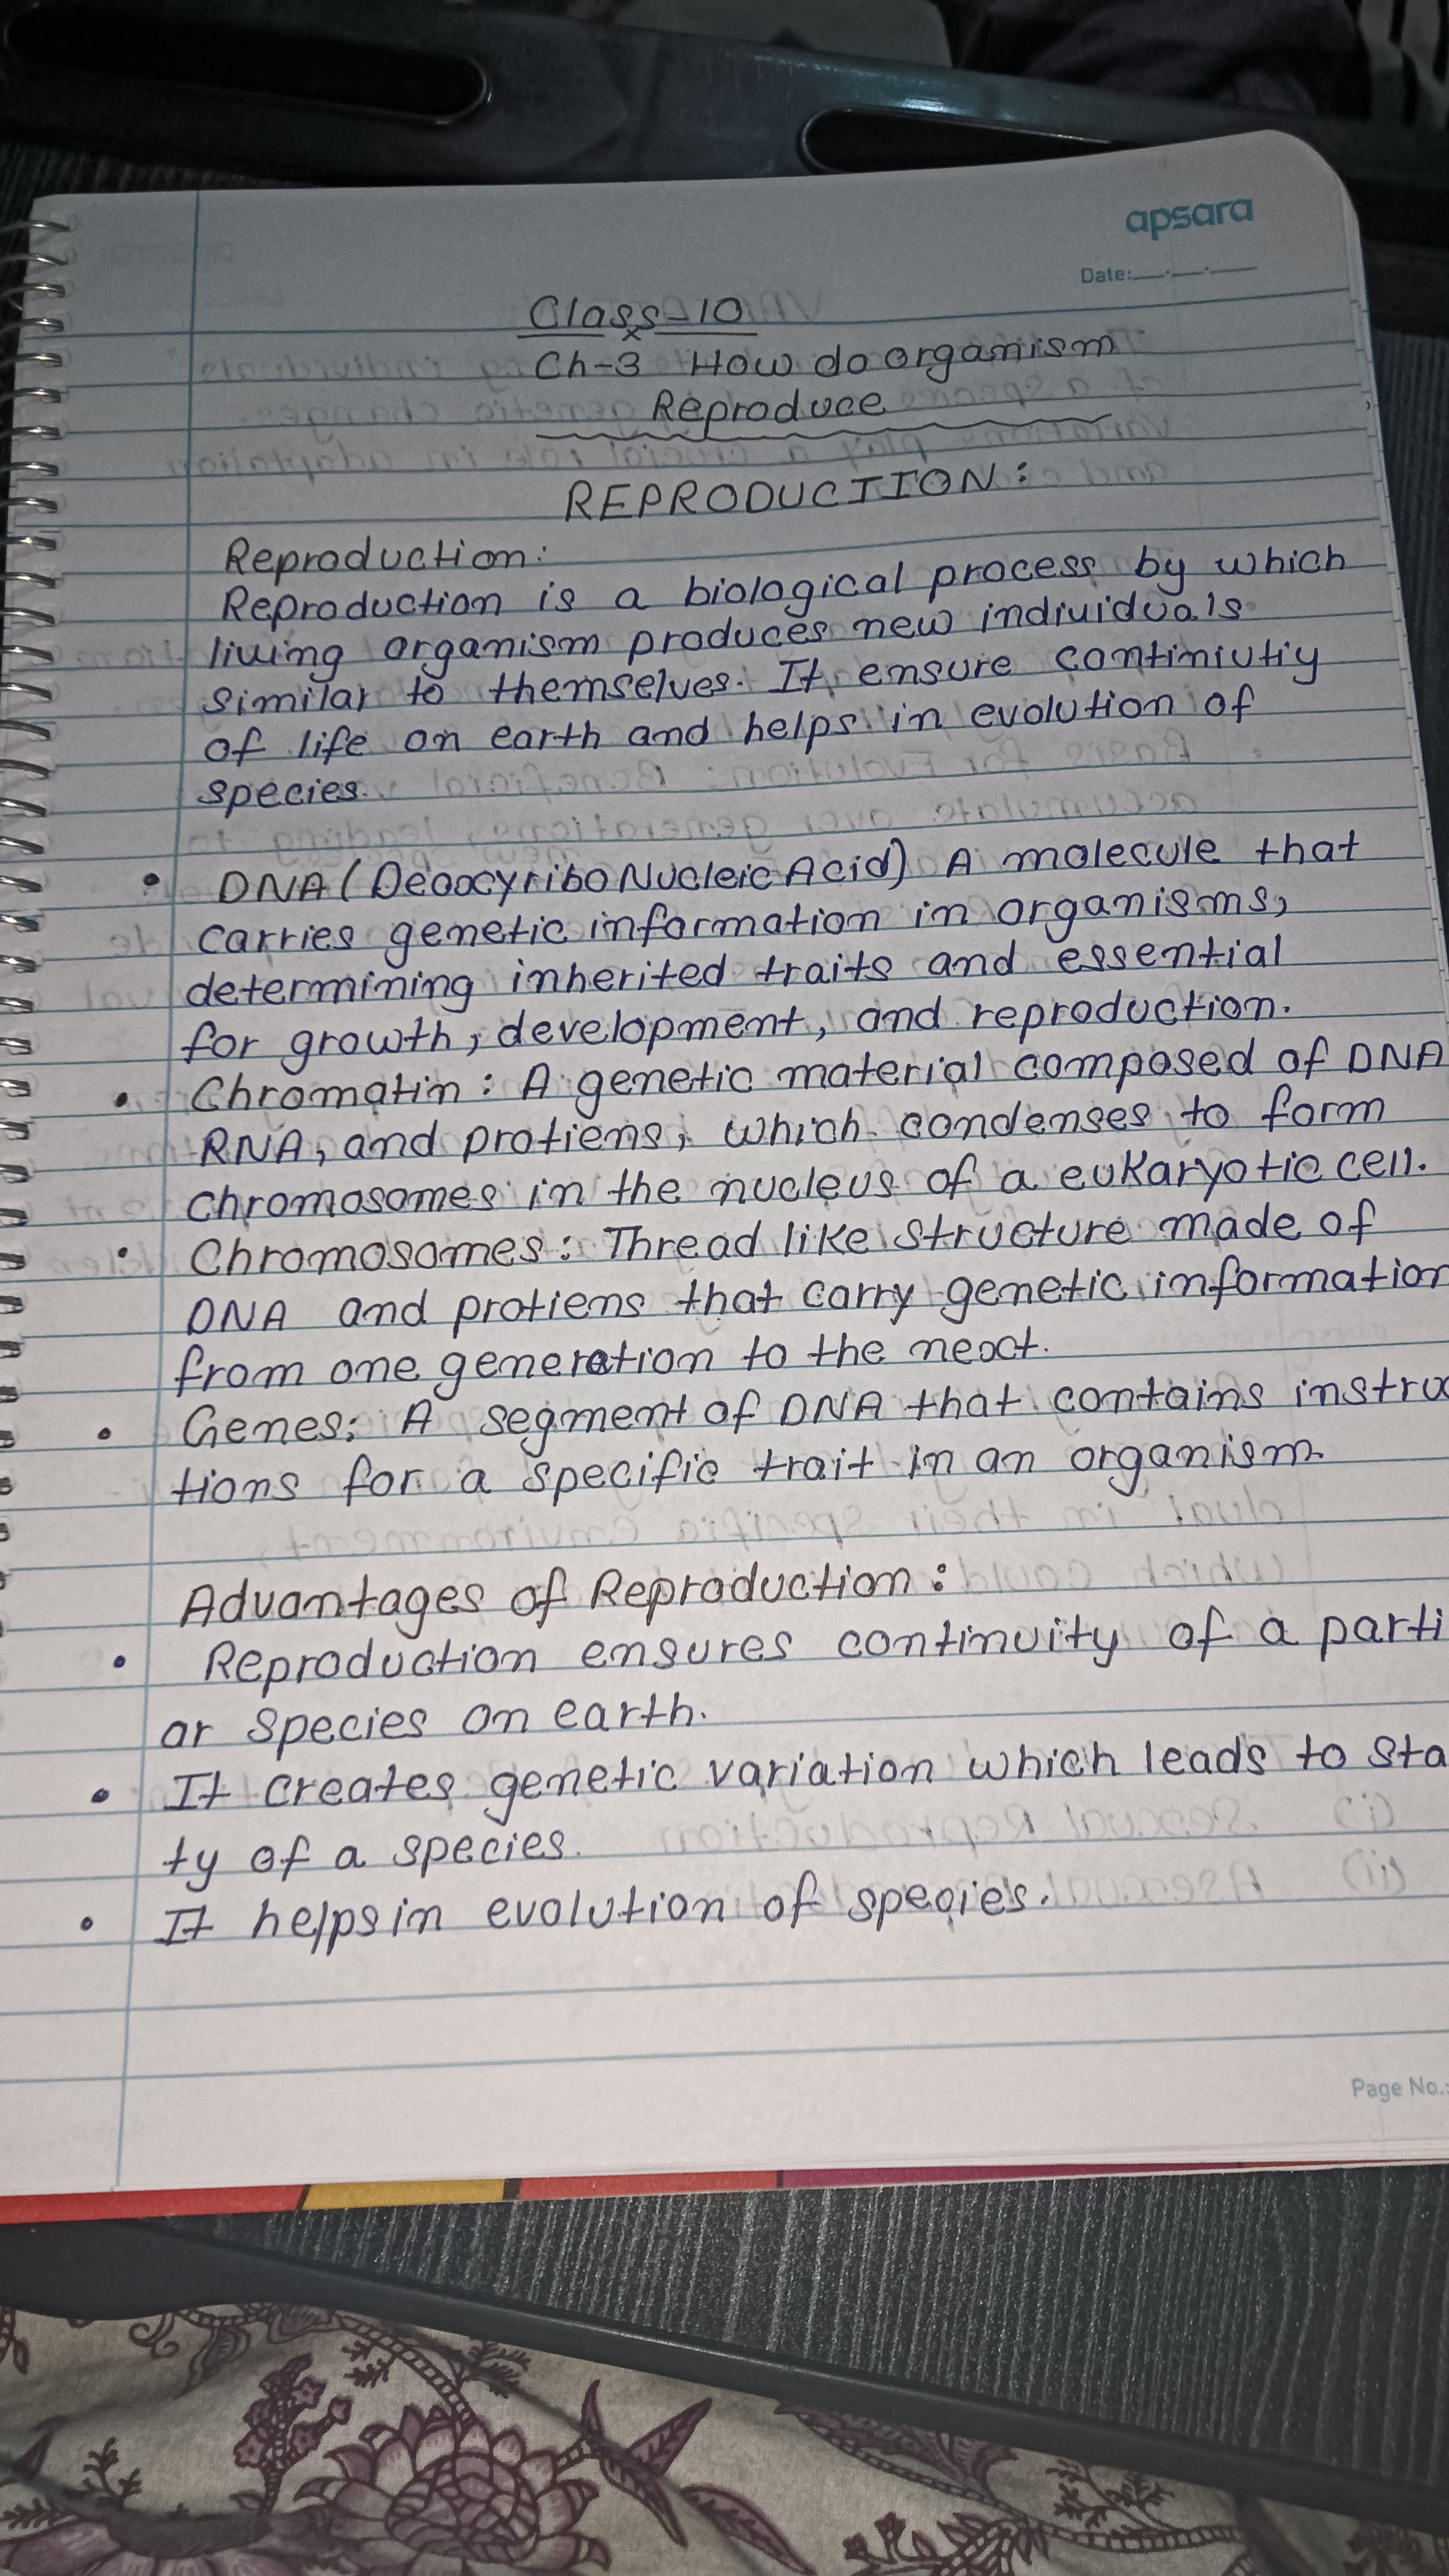 apsara
Date:
Class-10
Ch-3 How do organism
Reproduce
REPRODUCTION:
Reproduction:
Reproduction is a biological process by which
living organism produces new individuals
similar to themselves. It ensure continiutiy
of life on earth and helps in evolution of
species.
• DNA (Deoxcyribo Nucleic Acid) A molecule that
carries genetic information in organisms,
determining inherited traits and essential
for growth, development, and reproduction.
• Chromatin: A genetic material composed of DNA
RNA, and protiens, which condenses to form
chromosomes in the nucleus of a eukaryotic cell.
• Chromosomes: Thread like structure made of
DNA and protiens that carry genetic information
from one generation to the next.
• Genes: A segment of DNA that contains instruc
tions for a specific trait in an organism.
Advantages of Reproduction:
• Reproduction ensures continuity of a parti
ar species on earth.
• It creates genetic variation which leads to sta
ty of a species.
• It helps in evolution of species.
Page No.: